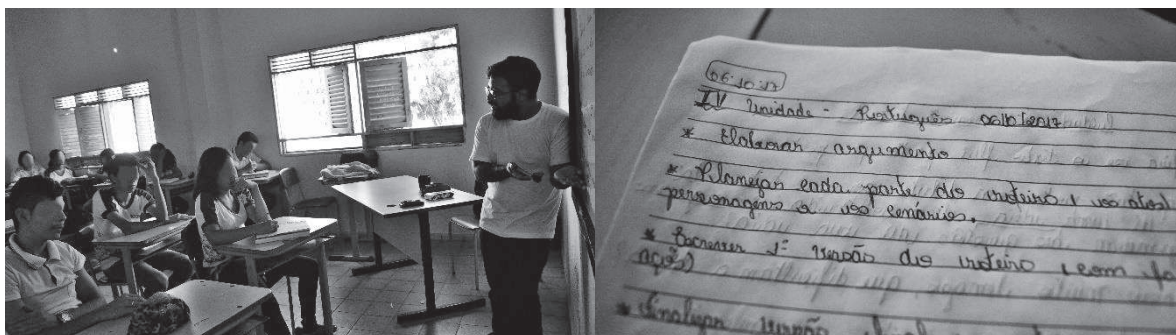 06.10.17
IV Unidade - Português 06/10/2017
* Elaborar argumento
* Planejar cada parte do roteiro (
personagens e cenários.
* Escrever 1ª versão do roteiro (com
ações)
* Finalizar versão